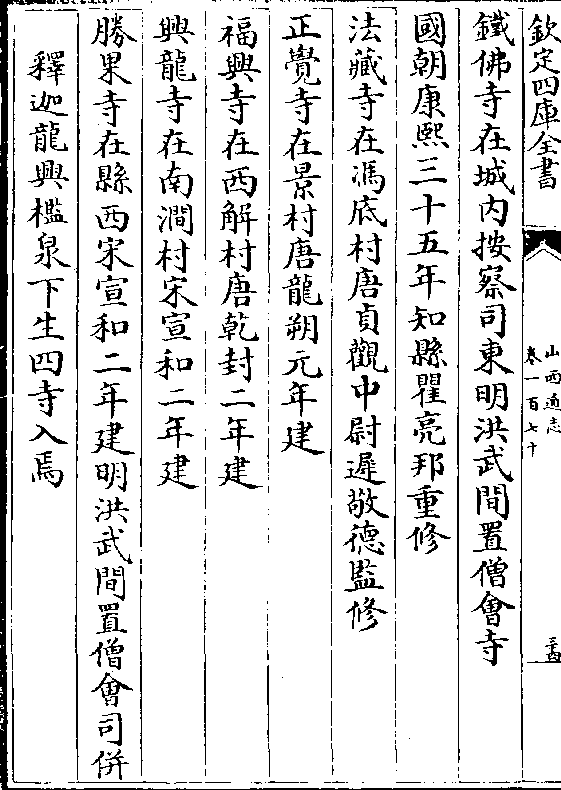 欽定四庫全書
山西通志
卷一百七十
三十四
鐵佛寺在城内按察司東明洪武間置僧會寺
國朝康熙三十五年知縣瞿亮邦重修
法藏寺在馮底村唐貞觀中尉遲敬德監修
正覺寺在景村唐龍朔元年建
福興寺在西解村唐乾封二年建
興龍寺在南澗村宋宣和二年建
勝果寺在縣西宋宣和二年建明洪武間置僧會司併
釋迦龍興檻泉下生四寺入焉